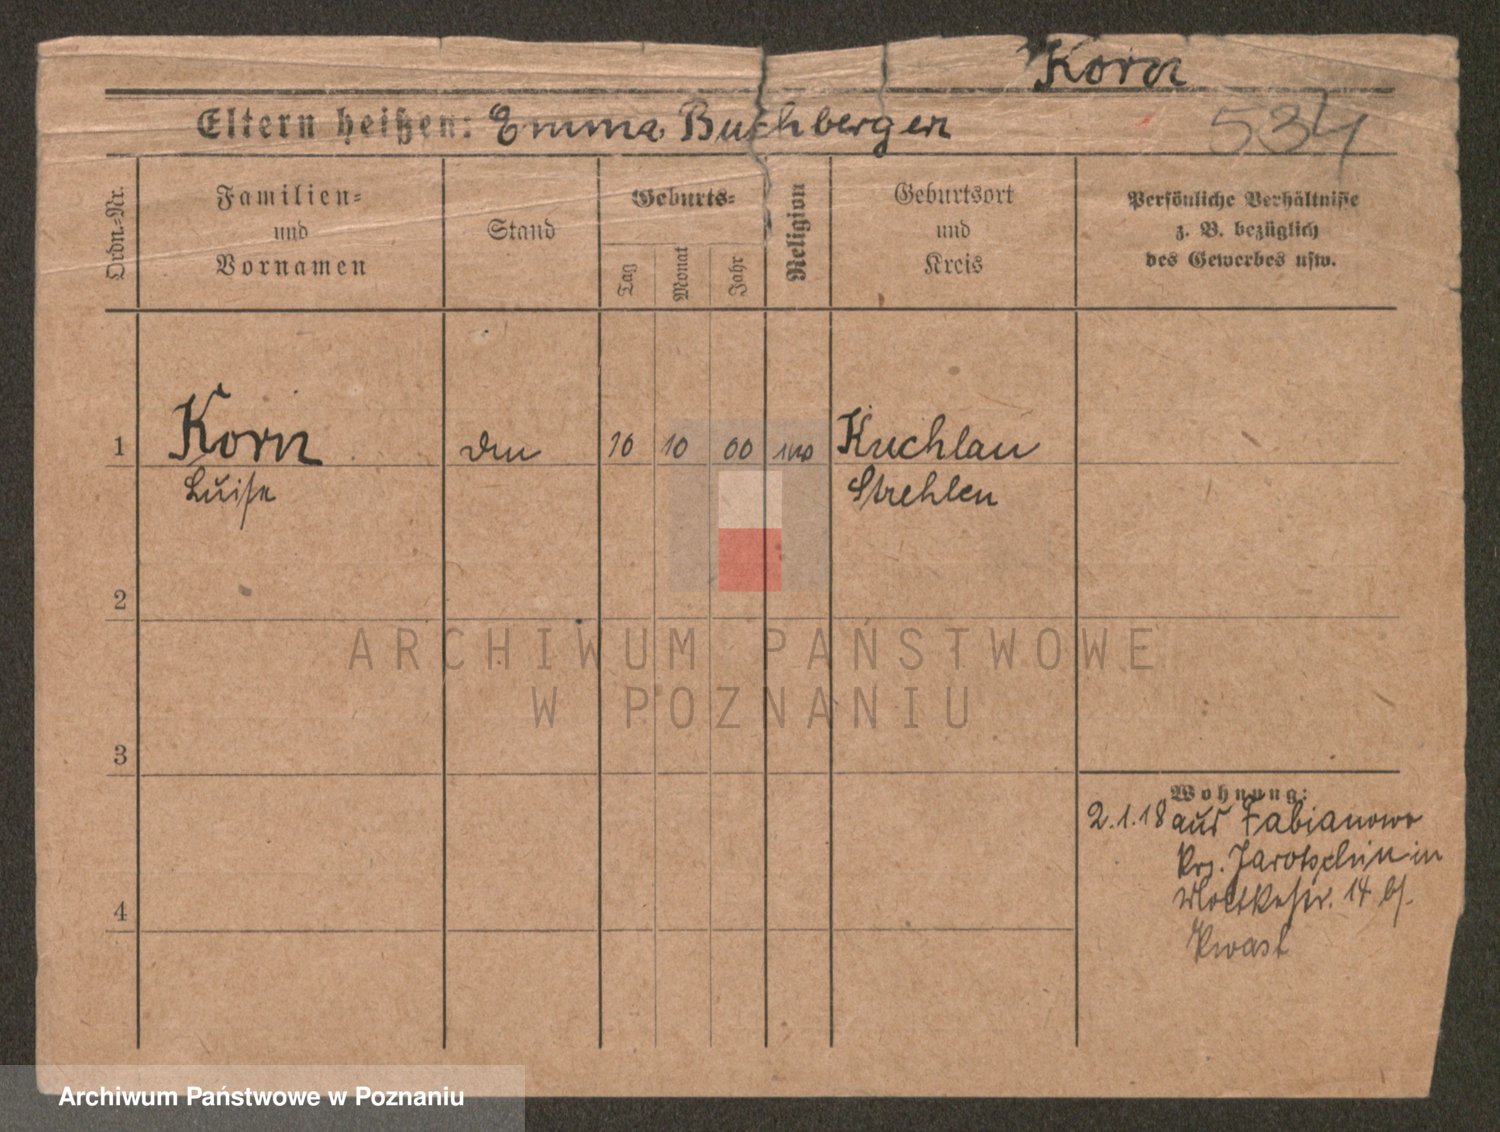 Korn
Eltern heißen: Emma Buchberger
534
Ordn.-Nr.
Familien-
und
Vornamen
Stand
Geburts-
Tag
Monat
Jahr
Religion
Geburtsort
und
Kreis
Persönliche Verhältnisse
z. B. bezüglich
des Gewerbes usw.
1
Korn
Luise
10 10 00
Kuchlau
Strehlen
2
3
4
Wohnung:
2.1.18 aus Fabianowo
Krs. Jarotschin in
Moltkestr. 14 b/.
Kwast
ARCHIWUM PAŃSTWOWE
W POZNANIU
Archiwum Państwowe w Poznaniu